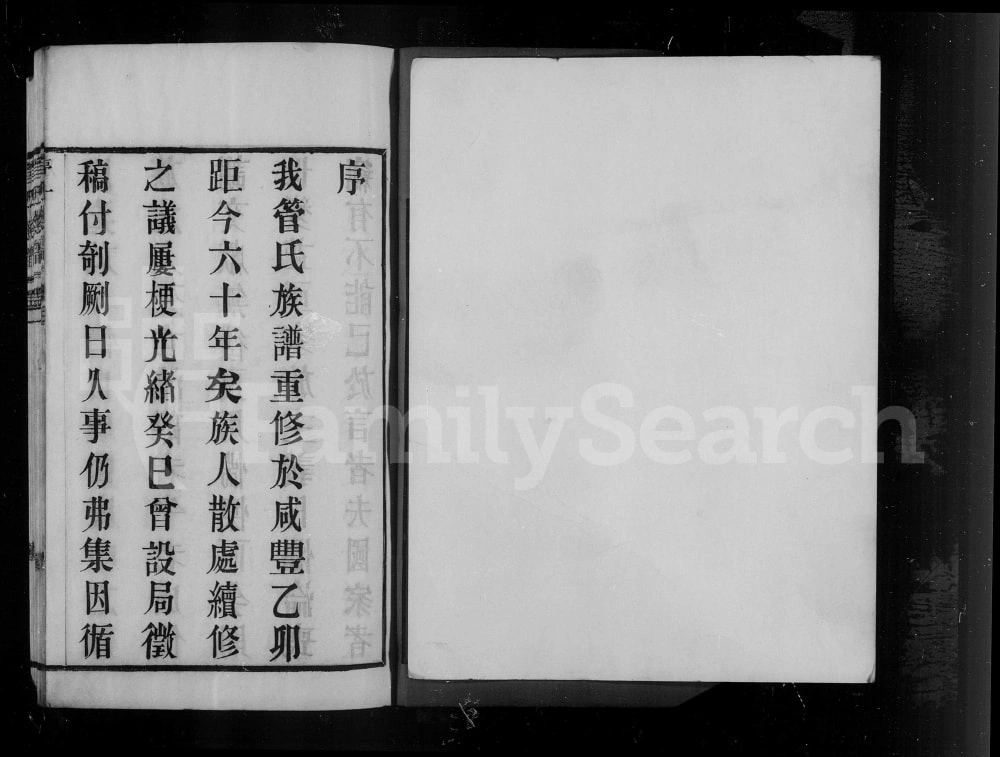 序
我管氏族譜重修於咸豐乙卯
距今六十年矣族人散處續修
之議屢梗光緒癸巳曾設局徵
稿付剞劂日久事仍弗集因循
FamilySearch